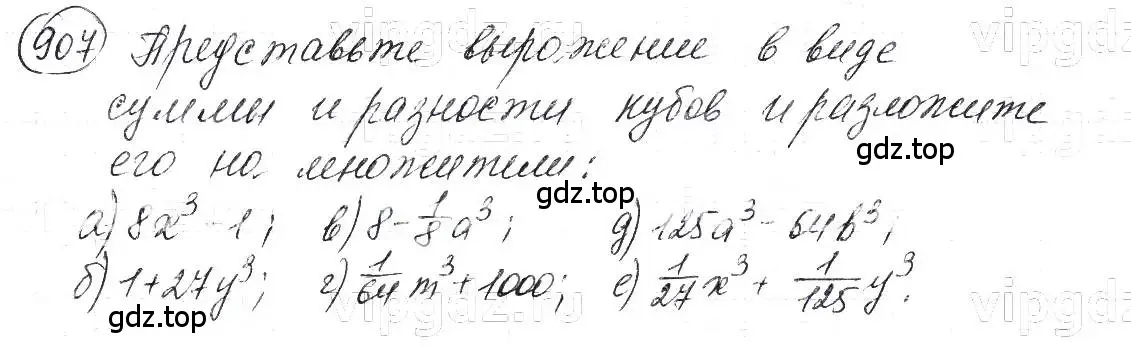 907 Представьте выражение в виде
суммы и разности кубов и разложите
его на множители:
gdz.top
gdz.top
а) 8x³ - 1; в) 8 - 1/8 a³; д) 125a³ - 64b³;
б) 1 + 27y³; г) 1/64 m³ + 1000; е) 1/27 x³ + 1/125 y³.
gdz.top
gdz.top